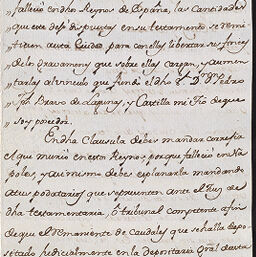 „ fallecio en dho Reyno de España, las Cantidades
„ que este deso dispuestas en su testamento se remi
„ tiesen a esta Ciudad para con ellas libertar sus fincas
„ de los Gravamenes que sobre ellas cargan, y aumen
„ tarlas al vinculo que fundó el dho Sr Dn Pedro
„ Jph. Bravo de Lagunas, y Castilla mi Tio de que
„ soy poseedor.
En dha Clausula debes mandar corregir
el que murio en estos Reynos, porque fallecio en Ná
poles, y asimismo debes explanarla mandando
a tus podatarios que se presenten ante el Juez de
dha testamentaria, ó tribunal competente a fin
de que el remanente de Caudales que se halla depo
sitado judicialmente en la depositaria Gral de esta